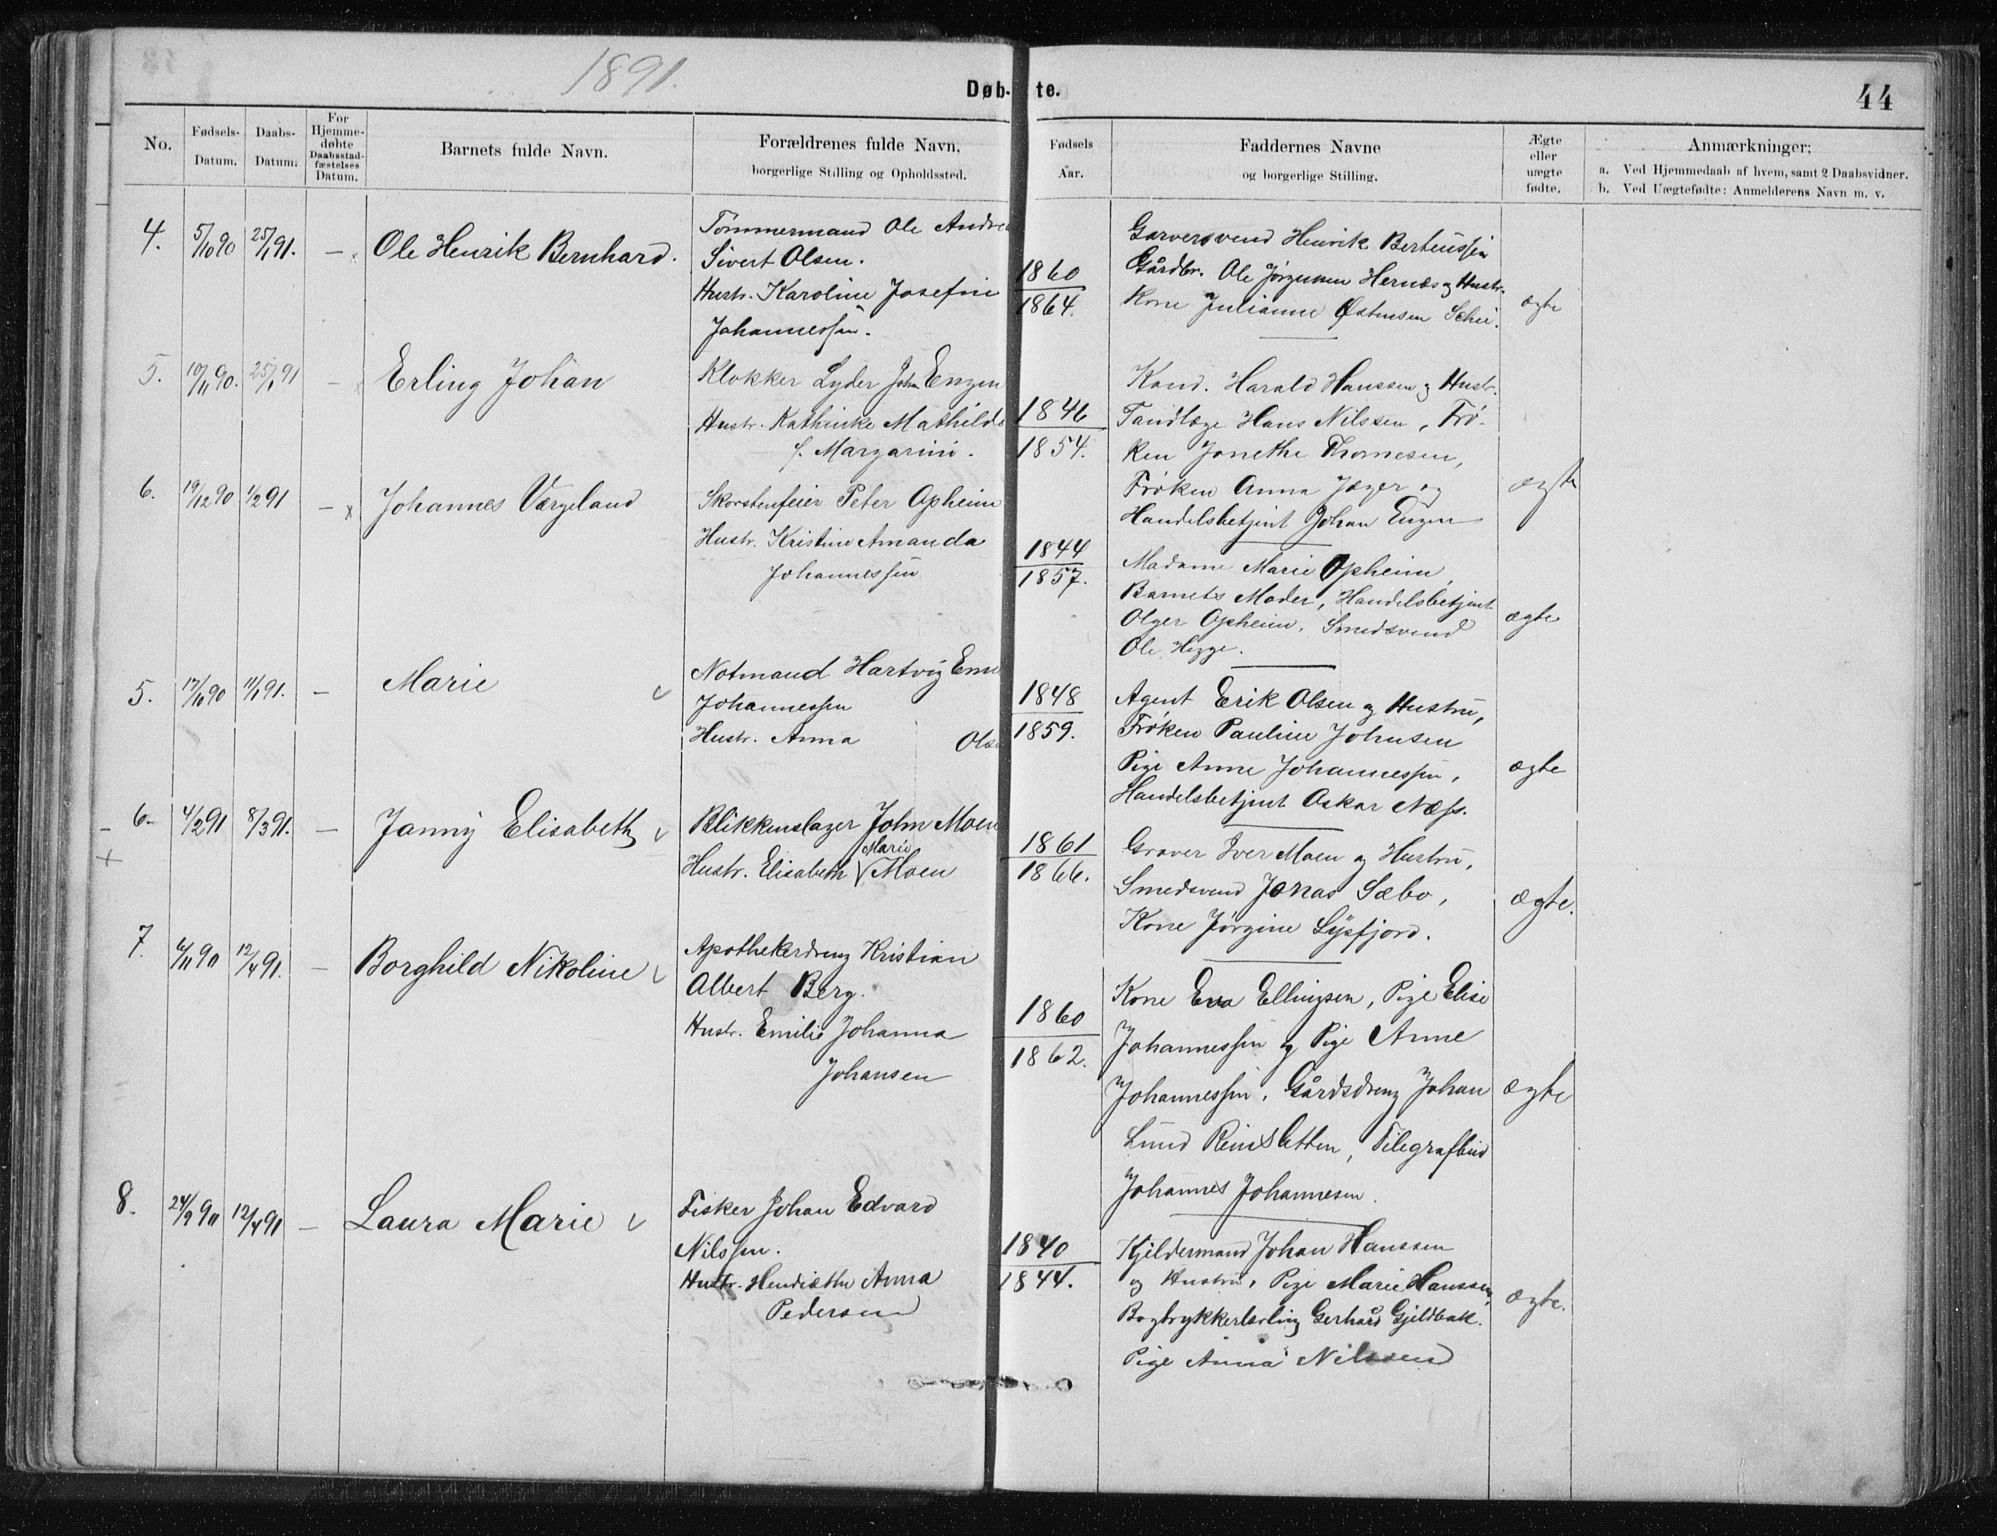 1891.
Døb- te.
44
No.
Fødsels-
Datum.
Daabs-
Datum.
For
Hjemme-
døbte
Daabsstad-
fæstelses
Datum.
Barnets fulde Navn.
Forældrenes fulde Navn,
borgerlige Stilling og Opholdssted.
Fødsels
Aar.
Faddernes Navne
og borgerlige Stilling.
Ægte
eller
uægte
fødte.
Anmærkninger;
a. Ved Hjemmedaab af hvem, samt 2 Daabsvidner.
b. Ved Uægtefødte: Anmelderens Navn m. v.
4. 5/10 90 25/1 91. – x Ole Henrik Bernhard.
Tømmermand Ole Andre
Sivert Olsen.
Hustr. Karoline Josefine
Johannessen.
1860
1864.
Garversvend Henrik Berteussen
Gårdbr. Ole Jørgensen Hernæs og Hustr.
Kone Julianne Østensen Schei.
ægte
5. 10/11 90. 25/1 91 – x Erling Johan
Klokker Lyder John Enzen
Hustr. Kathinke Mathilde
f. Margarini.
1846
1854.
Kand. Harald Hanssen og Hustr.
Tandlæge Hans Nilssen, Frø-
ken Jonethe Thomesen,
Frøken Anna Jæger og
Handelsbetjint Johan Enzen
ægte
6. 19/12 90 1/2 91 – x Johannes Værgeland
Skorstenfeier Peter Opheim
Hustr. Kristine Amanda
Johannessen
1844
1857.
Madame Marie Opheim,
Barnets Moder, Handelsbetjint
Olger Opheim, Smedsvend
Ole Hegge.
ægte
5. 17/10 90 11/1 91. – Marie v
Notmand Hartvig Eme
Johannessen
Hustr. Anna Olse
1848
1859.
Agent Erik Olsen og Hustru,
Frøken Pauline Johnsen
Pige Anne Johannessen,
Handelsbetjint Oskar Næss.
ægte
– 6– 4/2 91 8/3 91. – Janny Elisabeth v
+
Blikkenslager John Moen
Marie
Hustr. Elisabeth v Moen
1861
1866.
Graver Iver Moen og Hustru,
Smedsvend Jonas Sæbo,
Kone Jørgine Lysfjord.
ægte.
7. 6/11 90 12/4 91. – Borghild Nikoline v
Apothekerdreng Kristian
Albert Berg.
Hustr. Emilie Johanna
Johansen
1860
1862.
Kone Eva Ellingsen, Pige Elise
Johannessen og Pige Anne
Johannessen, Gårdsdreng Johan
Lund Reinsletten, Telegrafbud
Johannes Johannesen.
ægte
8. 24/9 90 12/4 91 – Laura Marie v
Fisker Johan Edvard
Nilssen.
Hustr. Hendiethe Anna
Pedersen
1840
1844.
Kjeldermand Johan Hanssen
og Hustru, Pige Marie Hanssen,
Bogtrykkerlærling Gerhard Gjeldbak.
Pige Anna Nilssen
ægte.